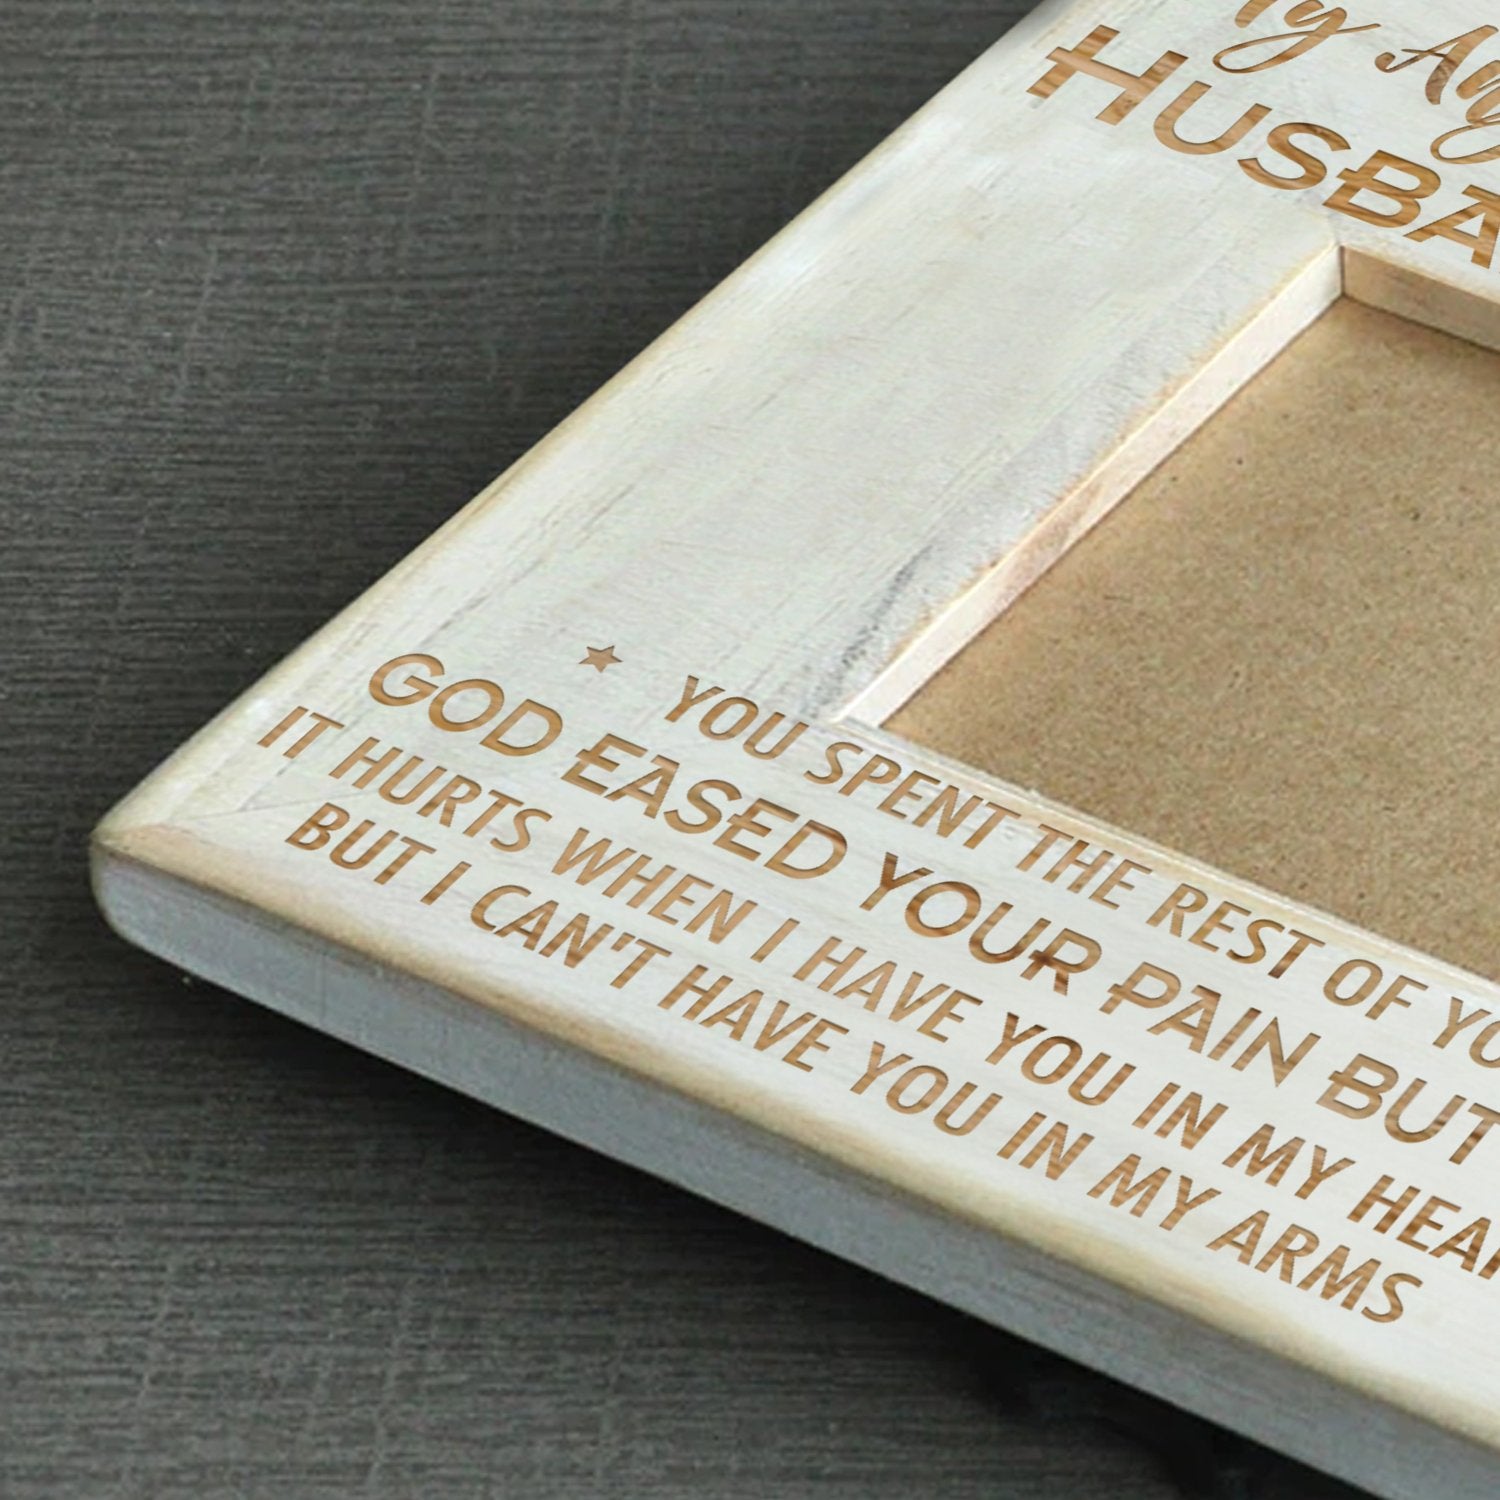 HUSBA
YOU SPENT THE REST OF YO
GOD EASED YOUR PAIN BUT
IT HURTS WHEN I HAVE YOU IN MY HEAR
BUT I CAN'T HAVE YOU IN MY ARMS